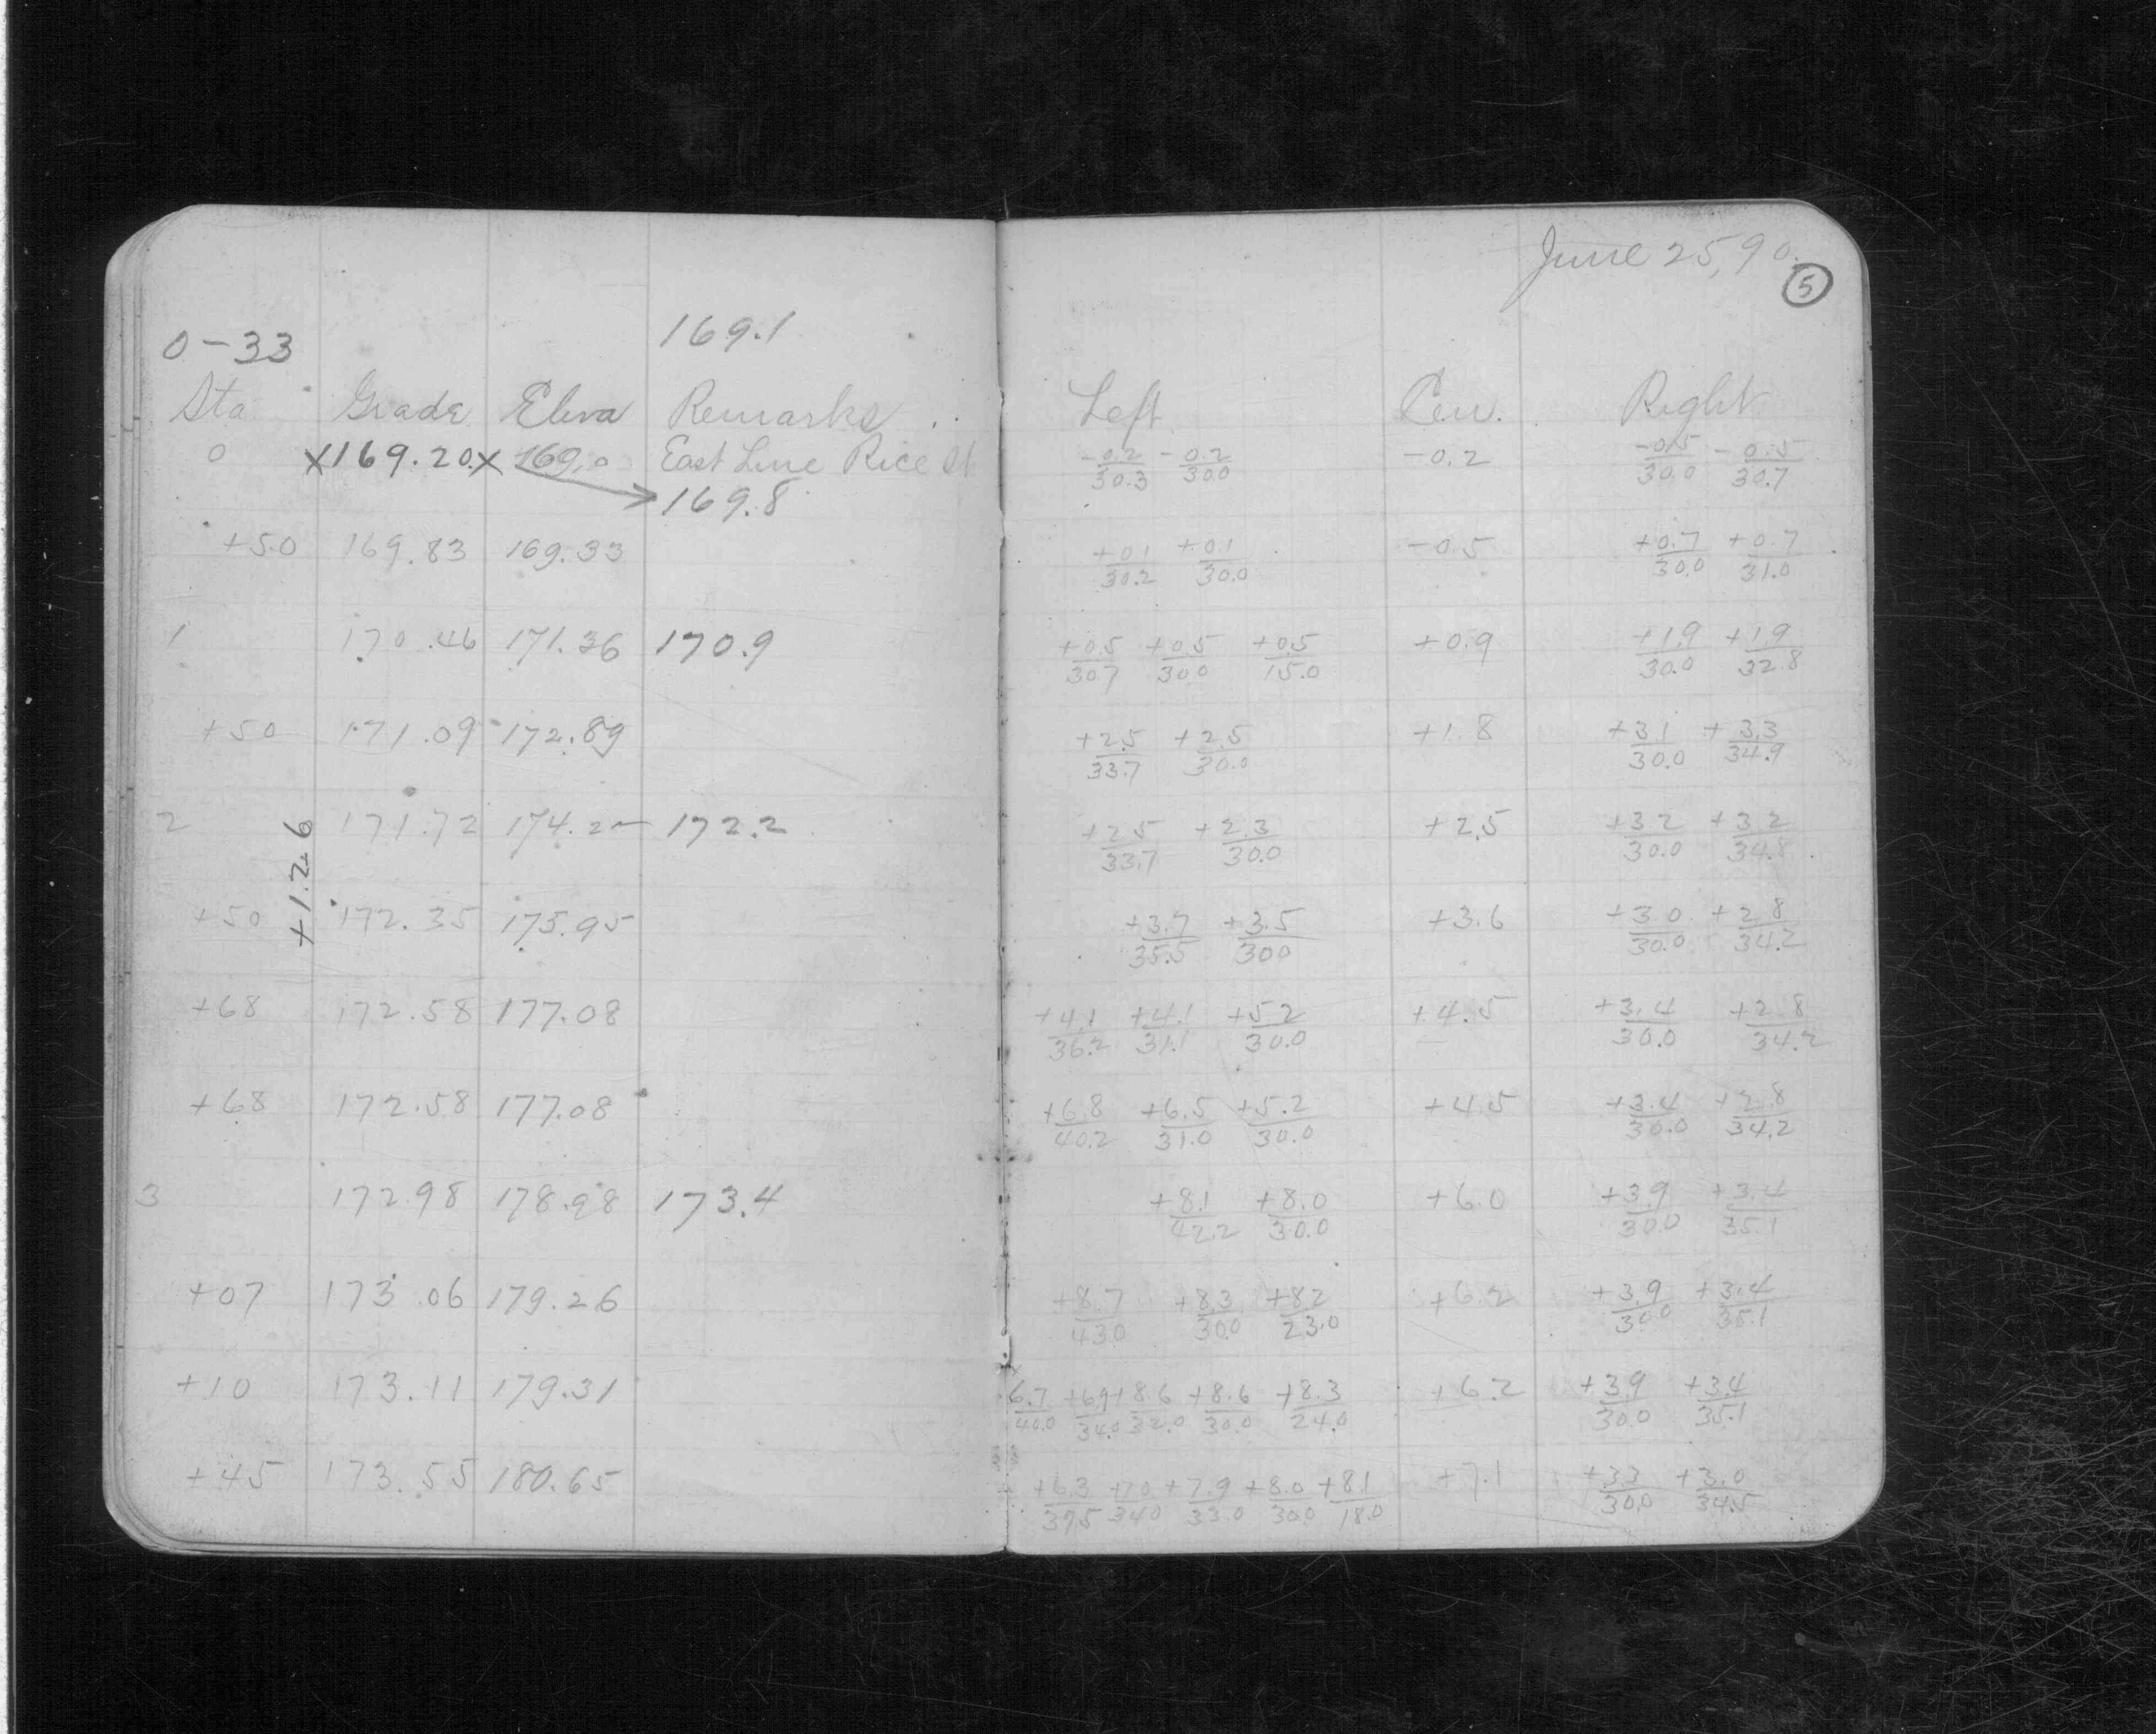 June 25, 90.
5
0-33 169.1
Sta Grade Eleva Remarks Left Cen. Right
0 X169.20X 169.0 East Line Rice St -0.2/30.3 -0.2/30.0 -0.2 -0.5/30.0 -0.5/30.7
169.8
+50 169.83 169.33 +0.1/30.2 +0.1/30.0 -0.5 +0.7/30.0 +0.7/31.0
1 170.46 171.36 170.9 +0.5/30.7 +0.5/30.0 +0.5/15.0 +0.9 +1.9/30.0 +1.9/32.8
+50 171.09 172.89 +2.5/33.7 +2.5/30.0 +1.8 +3.1/30.0 +3.3/34.9
2 171.72 174.2 172.2 +2.5/33.7 +2.3/30.0 +2.5 +3.2/30.0 +3.2/34.8
+1.26
+50 172.35 175.95 +3.7/35.5 +3.5/30.0 +3.6 +3.0/30.0 +2.8/34.2
+68 172.58 177.08 +4.1/36.2 +4.1/31.1 +5.2/30.0 +4.5 +3.4/30.0 +2.8/34.2
+68 172.58 177.08 +6.8/40.2 +6.5/31.0 +5.2/30.0 +4.5 +3.4/30.0 +2.8/34.2
3 172.98 178.98 173.4 +8.1/42.2 +8.0/30.0 +6.0 +3.9/30.0 +3.4/35.1
+07 173.06 179.26 +8.7/43.0 +8.3/30.0 +8.2/23.0 +6.2 +3.9/30.0 +3.4/35.1
+10 173.11 179.31 6.7/40.0 +6.9/34.0 +8.6/32.0 +8.6/30.0 +8.3/24.0 +6.2 +3.9/30.0 +3.4/35.1
+45 173.55 180.65 +6.3/37.5 +7.0/34.0 +7.9/33.0 +8.0/30.0 +8.1/18.0 +7.1 +3.3/30.0 +3.0/34.5